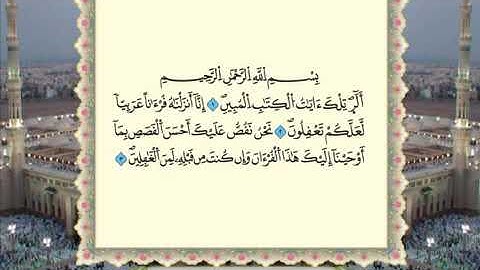 بِسْمِ اللَّهِ الرَّحْمَٰنِ الرَّحِيمِ
الٓر ۚ تِلْكَ ءَايَٰتُ الْكِتَٰبِ الْمُبِينِ ۝١ إِنَّآ أَنزَلْنَٰهُ قُرْءَٰنًا عَرَبِيًّا
لَّعَلَّكُمْ تَعْقِلُونَ ۝٢ نَحْنُ نَقُصُّ عَلَيْكَ أَحْسَنَ الْقَصَصِ بِمَآ
أَوْحَيْنَآ إِلَيْكَ هَٰذَا الْقُرْءَانَ وَإِن كُنتَ مِن قَبْلِهِۦ لَمِنَ الْغَٰفِلِينَ ۝٣